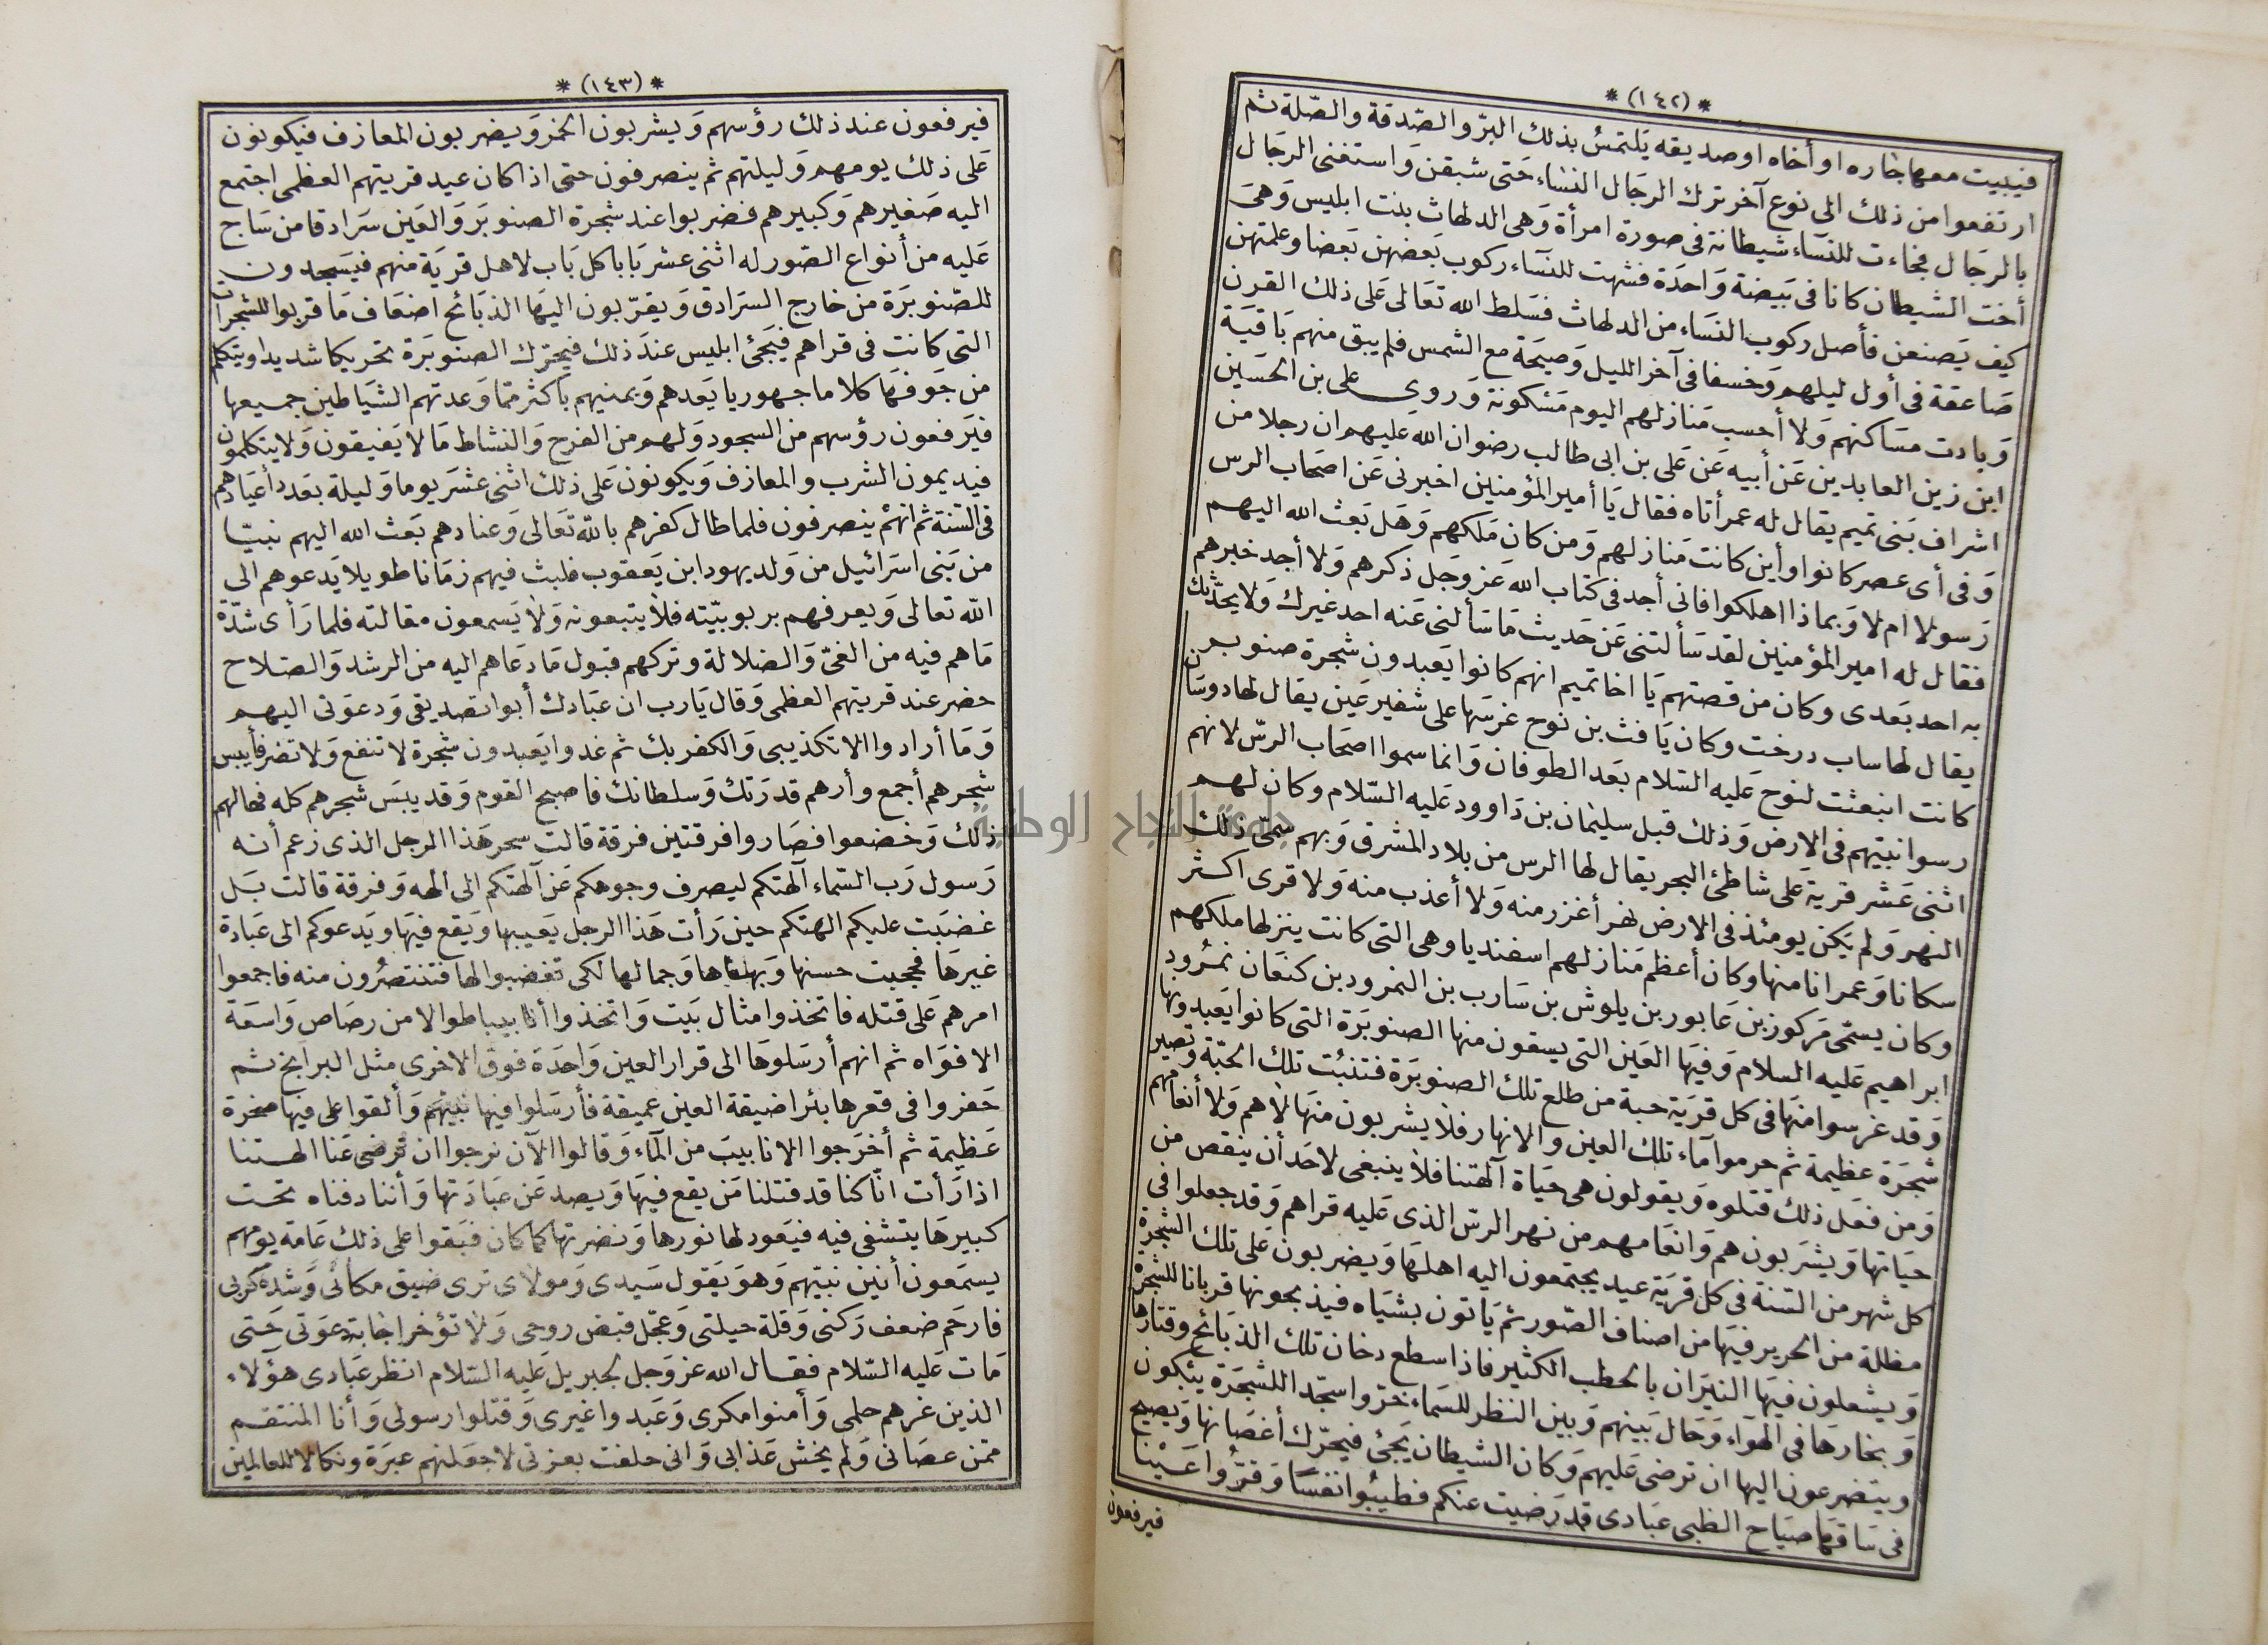 * (١٤٢) *
فيبيت معها جاره او أخاه او صديقه يَلتمسُ بذلك البرّ والصّدقة والصّلة ثم
ارتفعوا من ذلك الى نوع آخر ترك الرجَال النسَاء حَتى شبقن وَاستغنى الرجَال
بالرجَال فجاءت للنسَاء شيطانة فى صورة امرأة وَهى الدلهاث بنت ابليس وَهىَ
أخت الشيطان كانا فى بَيضة وَاحدَة فشهت للنسَاء ركوب بَعضهن بَعضا وعلمتهن
كيف يَصنعن فأصل ركوب النسَاء من الدلهاث فسَلط الله تعَالى عَلى ذلك القرن
صَاعقة فى أول ليلهم وَخسفا فى آخر الليل وَصيحَة مع الشمس فلم يبق منهم بَاقيَة
وَبادت مسَاكنهم وَلا أحسب مَنازلهم اليوم مَسْكونة وَروى على بن الحسَين
ابن زين العابدين عَن أبيه عَن عَلى بن ابى طالب رضوان الله عَليهم ان رجلا من
اشراف بَنى تميم يقال له عمر أتاه فقال يَا أمير المؤمنين اخبرنى عَن اصحَاب الرس
وَفى أى عصر كانوا وأين كانت مَنازلهم وَمن كان مَلكهم وَهَل بَعث الله اليهم
رَسولا ام لا وَبماذا اهلكوا فانى أجد فى كتاب الله عَز وجَل ذكرهم وَلا أجد خبرهم
فقال له امير المؤمنين لقد سَألتنى عَن حَديث مَا سَألنى عَنه احد غيرك وَلا يحدّثك
به احد بَعدى وكان من قصتهم يَا اخا تميم انهم كانوا يَعبدون شجرة صنوبر
يقال لها ساب درخت وكان يَافث بن نوح غرسَها على شفير عَين يقال لها دوسَان
كانت انبعثت لنوح عَليه السّلام بَعد الطوفان وَانما سموا اصحَاب الرسّ لانهم
رسوا نبيّهم فى الارض وَذلك قبل سليمان بن دَاوود عَليه السّلام وكان لهم
اثنى عَشر قريَة عَلى شاطئ البحر يقال لها الرس من بلاد المشرق وَبهم سمّى ذلك
النهر وَلم يَكن يومئذ فى الارض نهر أغزر منه وَلا أعذب منه وَلا قرى اكثر
سكانا وَعمرانا منها وكان أعظم مَنازلهم اسفنديا وهى التى كانت ينزلها ملكهم
وكان يسمّى مَركوز بن عَابور بن يلوش بن سَارب بن النمرود بن كنعَان نمرُود
ابراهيم عَليه السلام وَفيهَا العَين التى يسقون منها الصنوبَرة التى كانوا يَعبدونها
وَقد غرسوا منهَا فى كل قريَة حبة من طلع تلك الصنوبَرة فتنبُت تلك الحبّة وتصير
شجَرة عظيمة ثم حرموا مَآء تلك العين والانهار فلا يشربون منهَا لا هم وَلا أنعَامهم
وَمن فعَل ذلك قتلوه وَيقولون هى حيَاة آلهتنا فلا ينبغى لاحَد أن ينقص من
حيَاتها وَيشرَبون هم وَانعَامهم من نهر الرسّ الذى عَليه قراهم وَقد جعلوا فى
كل شهر من السّنة فى كل قريَة عيد يجتمعون اليه اهلهَا وَيضربون عَلى تلك الشجرة
مظلة من الحرير فيهَا من اصناف الصّور ثم يَاتون بشيَاه فيذبحونها قربانا للشجرة
وَيشعلون فيهَا النيَران بالحطب الكثير فاذا سطع دخان تلك الذبَائح وقتارها
وَبخارهَا فى الهوَآء وَحَال بَينهم وَبين النظر للسَماء خرّوا سجّدا للشجَرَة يبْكون
ويتضرعون اليها ان ترضى عَليهم وَكان الشيطان يَجئ فيحرّك أغصَانها وَيصيح
فى سَاقهَا صيَاح الظبى عبَادى قد رَضيت عنكم فطيبُوا نفسًا وَقرُّوا عَيْنا
فيرفعون
* (١٤٣) *
فيرفعون عند ذلك رؤسهم وَيشربون الخمر وَيضربون المعازف فيكونون
عَلى ذلك يومهم وَليلتهم ثم ينصرفون حتى اذا كان عيد قريتهم العظمى اجتمع
اليه صَغيرهم وَكبيرهم فضربوا عند شجرة الصنوبَر وَالعَين سَرادقا من سَاج
عَليه من أنواع الصّور له اثنى عشر بَابا كل بَاب لاهل قريَة منهم فيَسجدون
للصّنوبَرة من خارج السرَادق وَيقرّبون اليهَا الذبَائح اضعَاف مَا قربوا للشجرات
التى كانت فى قراهم فيَجئ ابليس عندَ ذلك فيحَرّك الصنوبَرة تحريكا شديدا ويتكلم
من جَوفهَا كلاما جهوريا يَعدهم وَيمنيهم باكثر ممّا وَعدتهم الشيَاطين جميعها
فيَرفعون رؤسهم من السجود وَلهم من الفرح وَالنشاط مَا لا يَفيقون وَلا يتكلمون
فيديمون الشرب والمعازف وَيكونون عَلى ذلك اثنى عشَر يوما وَليلة بعَدد أعيَادهم
فى السّنة ثم انهم ينصرفون فلما طال كفرهم باللّه تعَالى وَعنادهم بَعث الله اليهم نبيّا
من بَنى اسرَائيل من وَلد يهودا بن يَعقوب فلبث فيهم زمَانا طويلا يَدعوهم الى
اللّه تعالى وَيعرفهم بربوبيّته فلا يتبعونه وَلا يَسمعون مقالته فلما رَأى شدّة
مَا هم فيه من الغىّ وَالضلالة وتركهم قبول مَا دعَاهم اليه من الرشد وَالصّلاح
حضر عند قريتهم العظمى وَقال يَارب ان عبَادك أبوا تصديقى وَدعوَتى اليهم
وَمَا أرادوا الا تكذيبى وَالكفر بك ثم غدوا يَعبدون شجرة لا تنفع وَلا تضر فأيبس
شجرهم أجمع وأرهم قدرَتك وَسلطانك فاصبح القوم وَقد يبَس شجرهم كله فهالهم
ذلك وَخضعوا فصَاروا فرقتين فرقة قالت سحر هَذا الرجل الذى زعم أنه
رَسول رَب السّماء آلهتكم ليصرف وجوهكم عَن آلهتكم الى الهه وَفرقة قالت بَل
غضبَت عليكم الهتكم حين رَأت هَذا الرجل يَعيبها وَيقع فيهَا وَيَدعوكم الى عبَادة
غيرهَا فحجبت حسنها وَبهاءها وَجمالها لكى تغضبوا لها فتنتصرُون منه فاجمعوا
امرهم عَلى قتله فاتخذوا مثال بَيت وَاتخذوا أنابيبا طوالا من رصَاص وَاسعَة
الافوَاه ثم انهم أرسَلوهَا الى قرار العين وَاحدَة فوق الاخرى مثل البرابخ ثم
حَفروا فى قعرها بئرا ضيقة العين عميقة فأرسَلوا فيها نبيّهم وَألقوا على فيها صخرة
عَظيمة ثم أخرَجوا الانابيبَ من المآء وَقالوا الآن نرجوا ان ترضى عَنا الهتنا
اذا رَأت انّا كنا قد قتلنا مَن يقع فيهَا وَيصد عَن عبَادَتها وَأننا دفناه تحت
كبيرهَا يتشفى فيه فيَعود لها نورها وَنضرتها كما كان فبَقوا على ذلك عَامة يومهم
يسمَعون أنين نبيّهم وَهوَ يَقول سَيدى وَمولاى ترى ضيق مكانى وَشدة كربى
فارحَم ضعف رَكنى وَقلة حيلتى وَعجّل قبض روحى وَلا تؤخر اجَابة دعوَتى حَتى
مَات عَليه السّلام فقال الله عز وَجل لجبريل عَليه السّلام انظر عبَادى هؤلاء
الذين غرهم حلمى وَأمنوا مكرى وَعَبدوا غيرى وَقتلوا رسولى وَأنا المنتقم
ممّن عصَانى وَلم يخش عَذابى وَانى حلفت بعزتى لاجعَلنهم عبرَة ونكالا للعالمين
جامعة النجاح الوطنية